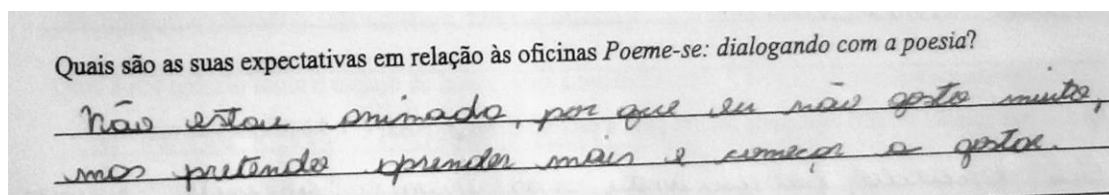 Quais são as suas expectativas em relação às oficinas Poeme-se: dialogando com a poesia?
Não estou animada, por que eu não gosto muito,
mas pretendo aprender mais e começar a gostar.